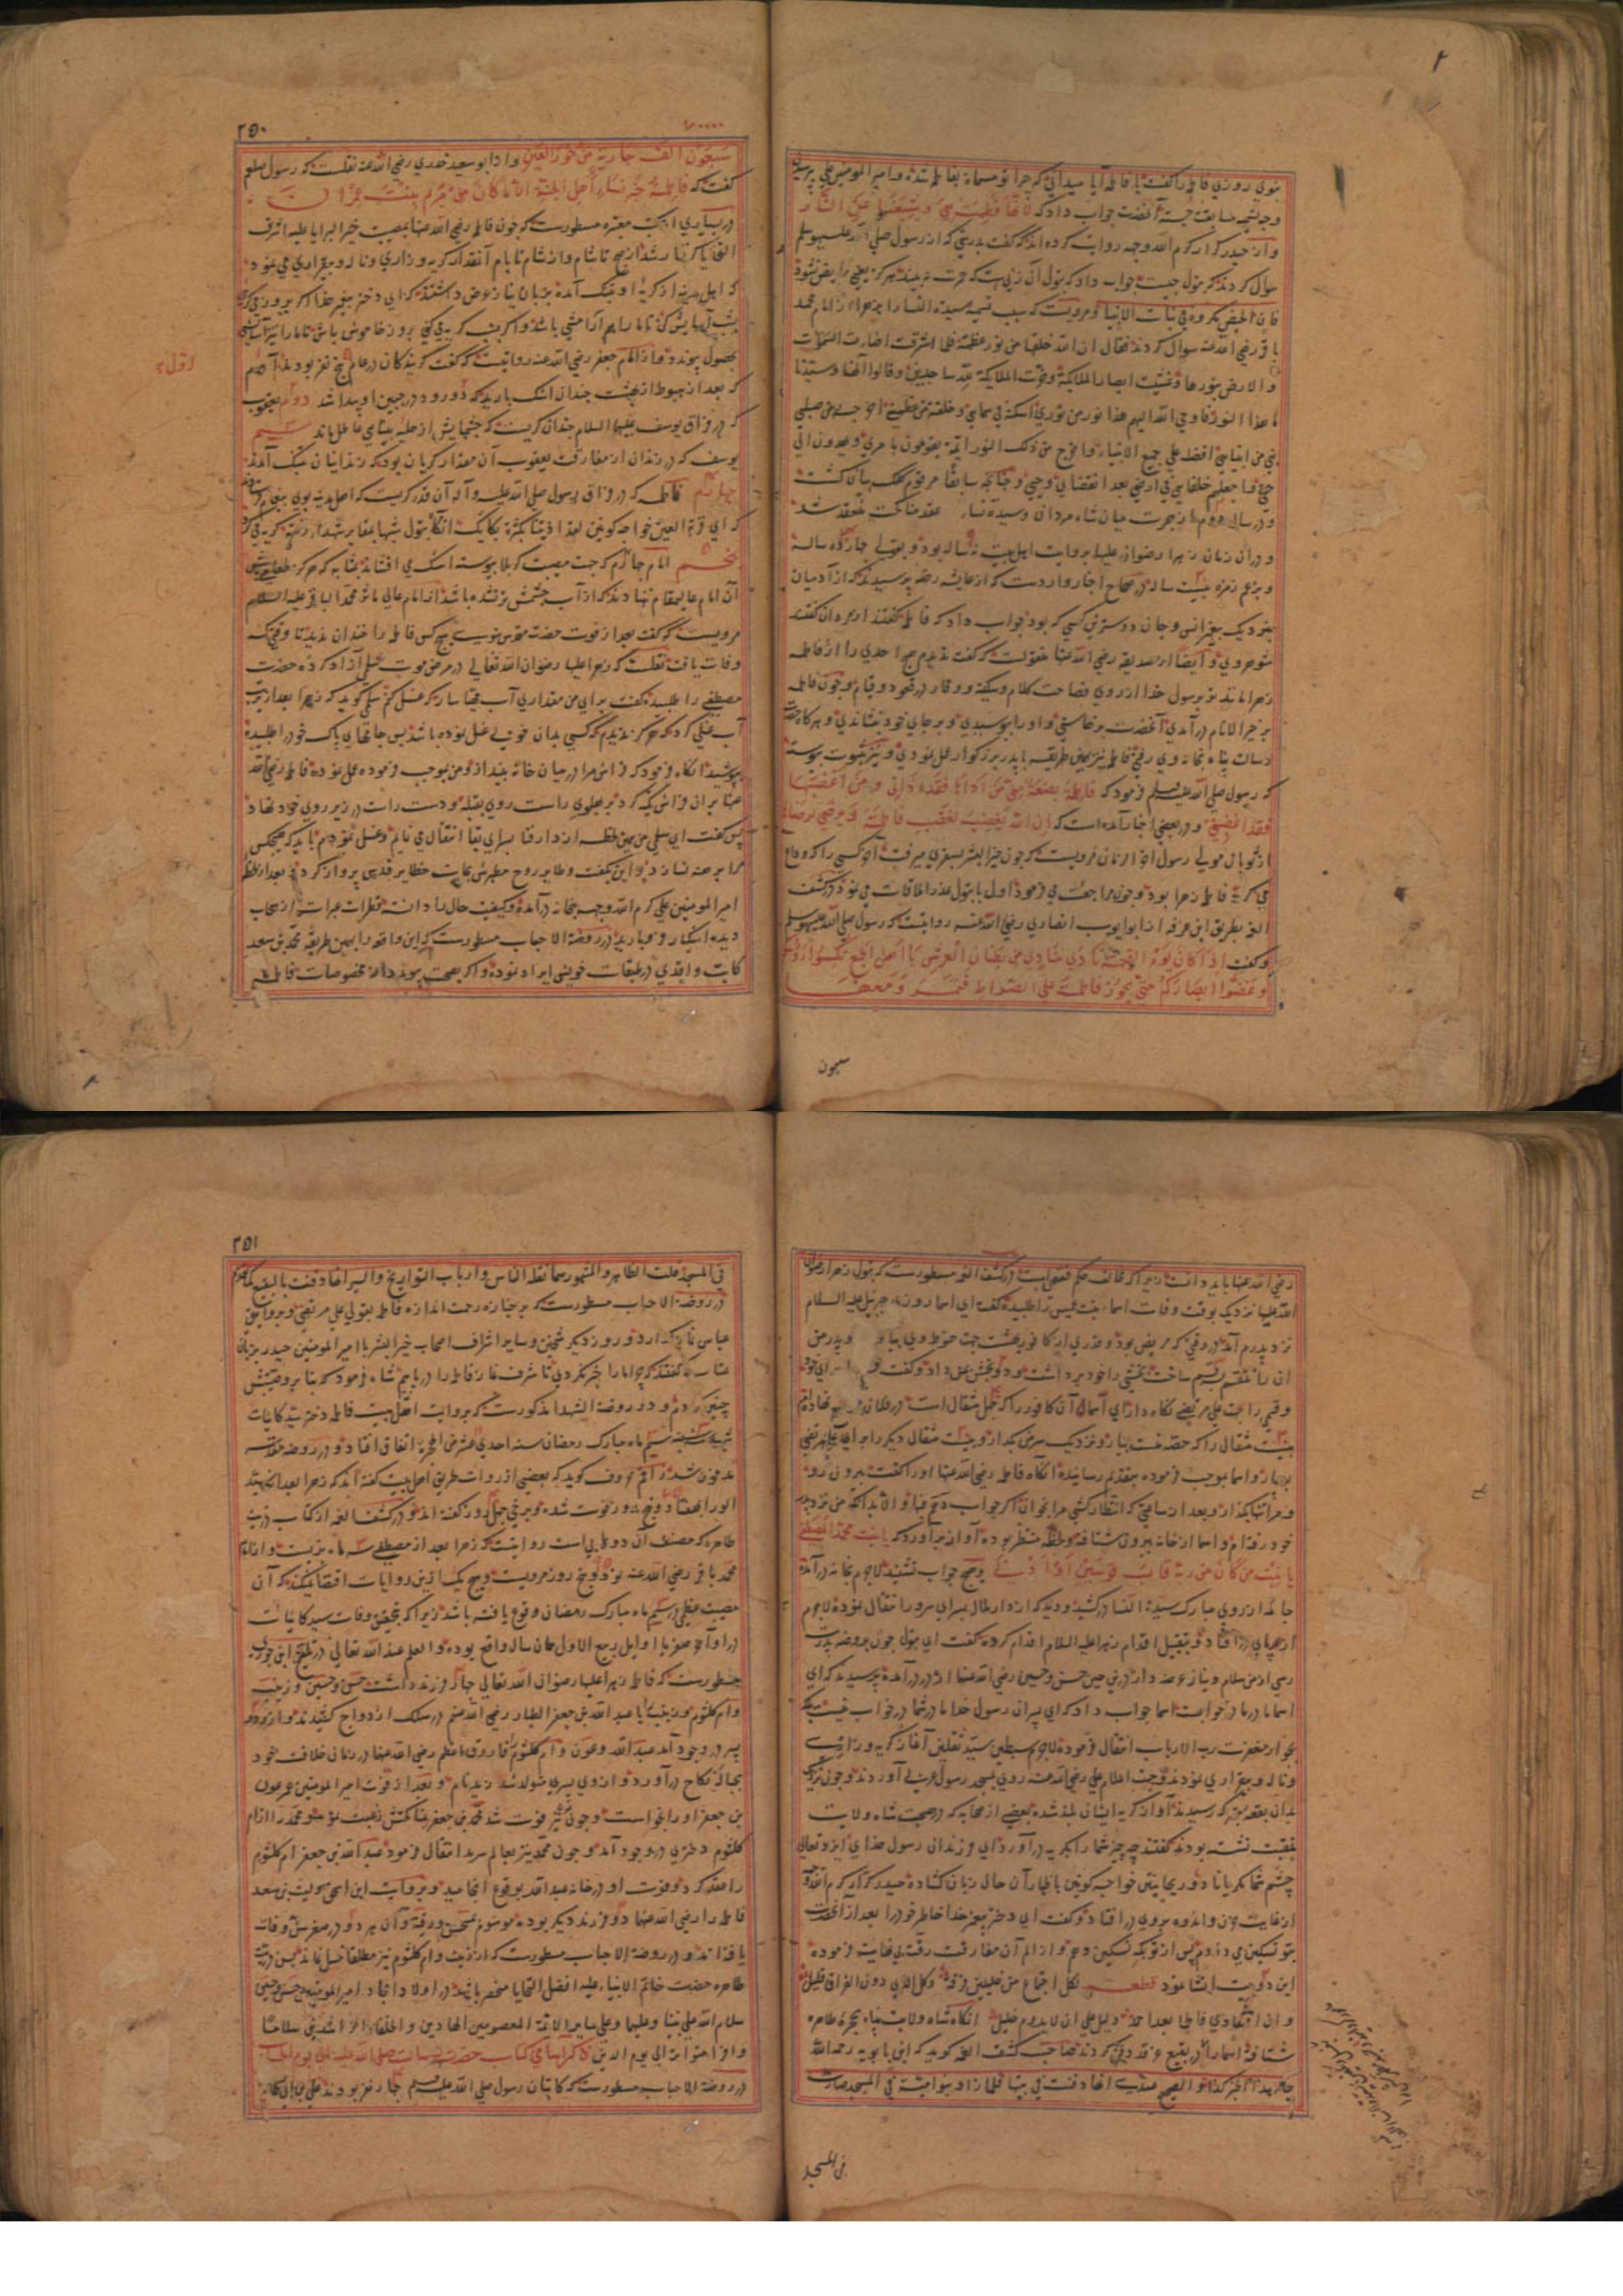 نبوی روزی فاطمه را گفت یا فاطمه آیا میدانی که چرا تو مسماة بفاطمه شده و امیر المومنین علی پرسید
وجه تسمیه چیست آنحضرت جواب داد که لانها فطمت هی وشیعتها عن النار
و از حیدر کرار کرم الله وجهه روایت کرده اند که گفت بدرستی که از رسول صلی الله علیه وسلم
سوال کردند که بتول چیست جواب داد که بتول آن زنی است که حمرت نه بیند هرگز یعنی حایض نشود
فان الحیض مکروه فی بنات الانبیا و مرویست که سبب تسمیه سیدة النسا را بزهرا از امام محمد
باقر رضی الله عنه سوال کردند فقال ان الله خلقها من نور عظمته فلما اشرقت اضاءت السموات
والارض بنورها وغشیت ابصار الملایکة وخرت الملایکة لله ساجدین وقالوا الهنا وسیدنا
ما هذا النور فاوحی الله الیهم هذا نور من نوری اسکنته فی سمایی وخلقته من عظمتی اخرجه من صلب
نبی من انبیایی افضله علی جمیع الانبیاء واخرج من ذلک النور ائمة یقومون بامری ویهدون الی
حقی واجعلهم خلفایی فی ارضی بعد انقضای وحیی و چنانچه سابقا مرقوم کلک بیان گشت
و در سال دوم از هجرت میان شاه مردان و سیده نساء عقد مناکحت منعقد شد
و در آن زمان زهرا رضوان الله علیها بروایت اهل بیت نه ساله بود و بقولی چهارده ساله
و بزعم زمره بیست ساله در صحاح اخبار وارد است که از عایشه رضه پرسیدند که از آدمیان
بنزدیک پیغمبر انس و جان دوسترین کسی که بود جواب داد که فاطمه گفتند از مردان گفت
شوهر وی و ایضا از صدیقه رضی الله عنها منقولست که گفت ندیدم هیچ احدی را از فاطمه
زهرا مانند تر برسول خدا از روی فصاحت کلام و سکینه و وقار در قعود و قیام و چون فاطمه
بر خیر الانام در آمدی آنحضرت برخاستی و او را ببوسیدی و بر جای خود بنشاندی و هرگاه حضرت
رسالت پناه بخانه وی رفتی فاطمه نیز همین طریقه با پدر بزرگوار عمل نمودی و نیز بثبوت پیوسته
که رسول صلی الله علیه وسلم فرمود که فاطمة بضعة منی من آذاها فقد آذانی ومن اغضبها
فقد اغضبنی و در بعضی اخبار آمده است که ان الله یغضب لغضب فاطمة ویرضی برضاها
از ثوبان مولی رسول آخر الزمان مرویست که چون خیر البشر بسفری میرفت آخر کسی را که وداع
می کرد فاطمه زهرا بود و چون مراجعت می فرمود اول با بتول عذرا ملاقات می نمود در کشف
الغمه بطریق ابن عرفه از ابو ایوب انصاری رضی الله عنه روایتست که رسول صلی الله علیه وسلم
گفت اذا کان یوم القیمة نادی منادی من بطنان العرش یا اهل الجمع نکسوا رؤسکم
وغضوا ابصارکم حتی تجوز فاطمة علی الصراط فتمر ومعها
سبعون
۲۵۰
سبعون الف جاریة من حور العین و از ابو سعید خدری رضی الله عنه نقلست که رسول صلعم
گفت که فاطمة خیر نساء اهل الجنة الا ما کان من مریم بنت عمران
در بسیاری از کتب معتبره مسطورست که چون فاطمه رضی الله عنها بمصیبت خیر البرایا علیه اشرف
التحایا گرفتار شد از صبح تا شام و از شام تا بام آنقدر گریه و زاری و ناله و بیقراری می نمود
که اهل مدینه از گریه او بتنگ آمده بزبان نیاز عرض داشتند که ای دختر پیغمبر خدا اگر بروز می گریی
بشب آسایش کن تا ما را هم آرامشی باشد و اگر بشب گریه می کنی بروز خاموش باش تا ما را نیز آسایشی
بحصول پیوندد و از امام جعفر رضی الله عنه روایتست که گفت گریندگان در عالم پنج نفر بودند اول آدم
که بعد از هبوط از بهشت چندان اشک بارید که دو رود در جبین او پیدا شد دوم یعقوب
که در فراق یوسف علیهما السلام چندان گریست که چشمهایش از حلیه بینایی عاطل ماند سیم
یوسف که در زندان از مفارقت یعقوب آن مقدار گریان بود که زندانیان بتنگ آمدند
چهارم فاطمه که در فراق رسول صلی الله علیه وآله آن قدر گریست که اهل مدینه بوی پیغام فرستادند
که ای قرة العین خواجه کونین لقد اذیتنا بکثرة بکایک آنگاه بتول شبها بمقابر شهدا رفته گریه می کرد
پنجم امام چهارم که جهت مصیبت کربلا پیوسته اشک می افشاند بمثابه که هرگز طعامی پیش
آن امام عالیمقام ننهادند که از آب چشمش تر نشده باشد از امام عالی ماثر محمد الباقر علیه السلام
مرویست که گفت بعد از فوت حضرت مقدس نبوی هیچ کس فاطمه را خندان ندید تا وقتی که
وفات یافت نقلست که زهرا علیها رضوان الله تعالی در مرض موت سلمی آزاد کرده حضرت
مصطفی را طلبیده گفت برای من مقداری آب مهیا ساز که غسل کنم سلمی گوید که زهرا بعد از ترتیب
آب غسلی کرد که هرگز ندیدم که کسی بدان خوبی غسل نموده باشد پس جامهای پاک خود را طلبیده
بپوشید آنگاه فرمود که فراش مرا در میان خانه بینداز و من بموجب فرموده عمل نموده فاطمه رضی الله
عنها بر آن فراش تکیه کرد بر پهلوی راست روی بقبله و دست راست در زیر روی خود نهاد
پس گفت ای سلمی من همین لحظه از دار فنا بسرای بقا انتقال می نمایم و غسل نمودم باید که هیچکس
مرا برهنه نسازد این بگفت و طایر روح مطهرش بجانب حظایر قدس پرواز کرد و بعد از لحظه
امیر المومنین علی کرم الله وجهه بخانه در آمده و کیفیت حال را دانسته قطرات عبرات از سحاب
دیده اشکبار فرو بارید در روضة الاحباب مسطورست که این واقعه را بهمین طریق محمد بن سعد
کاتب واقدی در طبقات خویش ایراد نموده و اگر بصحت پیوندد از مخصوصات فاطمه
رضی الله عنها باید دانست زیرا که مخالف حکم فقهی است در کشف الغمه مسطورست که بتول زهرا رضوان
الله علیها نزدیک بوقت وفات اسماء بنت عمیس را طلبیده گفت ای اسما روزی جبرئیل علیه السلام
نزد پدرم آمد در وقتی که مریض بود و قدری از کافور بهشت جهت حنوط وی بیاورد و پدر من
آن را منقسم بسه قسم ساخت بخشی را خود برداشت و دو بخش بمن داد و گفت
و قسمی را جهت علی مرتضی نگاه دار ای اسما آن کافور را که چهل مثقال است در فلان موضع نهاده ام
بیست مثقال را که حصه منست بیار و نزدیک سر من بگذار و بیست مثقال دیگر را برای علی مرتضی
بردار و اسما بموجب فرموده بتقدیم رسانید آنگاه فاطمه رضی الله عنها او را گفت بیرون رو
و مرا تنها بگذار و بعد از ساعتی که انتظار کشی مرا بخوان اگر جواب دهم فبها و الا بدانکه من نزد پدر
خود رفته ام و اسما از خانه بیرون شتافته و لحظه منتظر بوده آواز بر آورد که یا بنت محمد المصطفی
یا بنت من کان من ربه قاب قوسین او ادنی و هیچ جواب نشنید لاجرم بخانه در آمده
جامه از روی مبارک سیدة النساء در کشید و دید که از دار ملال بسرای سرور انتقال نموده لاجرم
از پای در افتاد و بتقبیل اقدام زهرا علیها السلام اقدام کرده گفت ای بتول چون بروضه پدرت
رسی از من سلام و نیاز عرضه دار در این حین حسن و حسین رضی الله عنهما از در در آمده پرسیدند که ای
اسما مادر ما در خوابست اسما جواب داد که ای پسران رسول خدا مادر شما در خواب نیست بلکه
بجوار مغفرت رب الارباب انتقال فرموده لاجرم سبطین سید ثقلین آغاز گریه و زاری
و ناله و بیقراری نمودند و جهت اعلام علی رضی الله عنه روی بمسجد رسول عربی آوردند و چون نزدیک
بدان بقعه متبرکه رسیدند آواز گریه ایشان بلند شده بعضی از صحابه که در صحبت شاه ولایت
منقبت نشسته بودند گفتند چه چیز شما را بگریه در آورد ای فرزندان رسول خدای ایزد تعالی
چشم شما گریان مگرداناد و ریحانتین خواجه کونین باظهار آن حال زبان گشاده حیدر کرار کرم الله وجهه
از غایت حزن و اندوه بروی در افتاد و گفت ای دختر پیغمبر خدا خاطر خود را بعد از آنحضرت
بتو تسکین می دادم پس از تو بکه تسکین دهم و از الم آن مفارقت رقت بی نهایت فرموده
این دو بیت انشا نمود قطعه لکل اجتماع من خلیلین فرقة وکل الذی دون الفراق قلیل
وان افتقادی فاطما بعد احمد دلیل علی ان لا یدوم خلیل آنگاه شاه ولایت پناه بحجره طاهره
شتافته اسما را در بقیع غرقد دفن کردند صاحب کشف الغمه گوید که ابن بابویه رحمه الله
جاء بهذا الخبر کذا والصحیح عندی انها دفنت فی بیتها فلما زاد بنو امیة فی المسجد صارت
فی المسجد
۲۵۱
فی المسجد قلت الظاهر والمشهور مما نقله الناس وارباب التواریخ والسیر انها دفنت بالبقیع کما تقدم
در روضة الاحباب مسطورست که بر جنازه رحمت اندازه فاطمه بقولی علی مرتضی و بروایتی
عباس نماز گذارد و روز دیگر شیخین و سایر اشراف اصحاب خیر البشر با امیر المومنین حیدر بزبان
عتاب گفتند که چرا ما را خبر نکردی تا شرف نماز فاطمه را دریابیم شاه فرمود که بنا بر وصیتش
چنین کردم و در روضة الشهدا مذکورست که بروایت اهل بیت فاطمه دختر سید کاینات
شب سه شنبه سیم ماه مبارک رمضان سنه احدی عشر من الهجرة اتفاق افتاد و در روضه مقدسه
مدفون شد راقم حروف گوید که بعضی از روات طریق اهل بیت گفته اند که زهرا بعد از سید
الوری بهفتاد و پنج روز فوت شده و برخی چهل روز گفته اند و در کشف الغمه از کتاب ذریت
طاهره که مصنف آن دولابی است روایتست که زهرا بعد از مصطفی سه ماه بزیست و از امام
محمد باقر رضی الله عنه نود و پنج روز مرویست و هیچ یک ازین روایات اقتضا نمیکند که آن
مصیبت عظمی در سیم ماه مبارک رمضان وقوع یافته باشد زیرا که بتحقیق وفات سید کاینات
در اواخر صفر یا اوایل ربیع الاول همان سال واقع بوده والعلم عند الله تعالی در تلقیح ابن جوزی
مسطورست که فاطمه زهرا علیها رضوان الله تعالی چهار فرزند داشت حسن و حسین و زینب
و ام کلثوم و زینب با عبد الله بن جعفر الطیار رضی الله عنهم در سلک ازدواج کشیدند و از وی دو
پسر در وجود آمد عبد الله و عون و ام کلثوم را فاروق اعظم رضی الله عنها در زمان خلافت خود
بحباله نکاح در آورد و از وی پسری متولد شد زید نام و بعد از فوت امیر المومنین عمر عون
بن جعفر او را بخواست و چون عون نیز فوت شد محمد بن جعفر بمناکحتش رغبت نمود و محمد را از ام
کلثوم دختری در وجود آمد و چون محمد نیز بعالم سرمد انتقال فرمود عبد الله بن جعفر ام کلثوم
را عقد کرد و فوت او در خانه عبد الله بوقوع انجامید و بروایت ابن اسحق و لیث بن سعد
فاطمه را رضی الله عنها دو فرزند دیگر بوده موسوم بمحسن و رقیه و آن هر دو در صغر سن وفات
یافته اند و در روضة الاحباب مسطورست که از زینب و ام کلثوم نیز مطلقا نسل نماند پس ذریت
طاهره حضرت خاتم الانبیاء علیه افضل التحایا منحصر باشد در اولاد امجاد امیر المومنین حسن و حسین
سلام الله علی نبینا وعلیهما وعلی سایر الائمة المعصومین الهادین والخلفاء الراشدین سلاما
وافرا متواترا الی یوم الدین ذکر اسامی کتاب حضرت رسالت صلی الله علیه الی یوم الحساب
در روضة الاحباب مسطورست که کاتبان رسول صلی الله علیه وسلم چهار نفر بودند علی بن ابی طالب